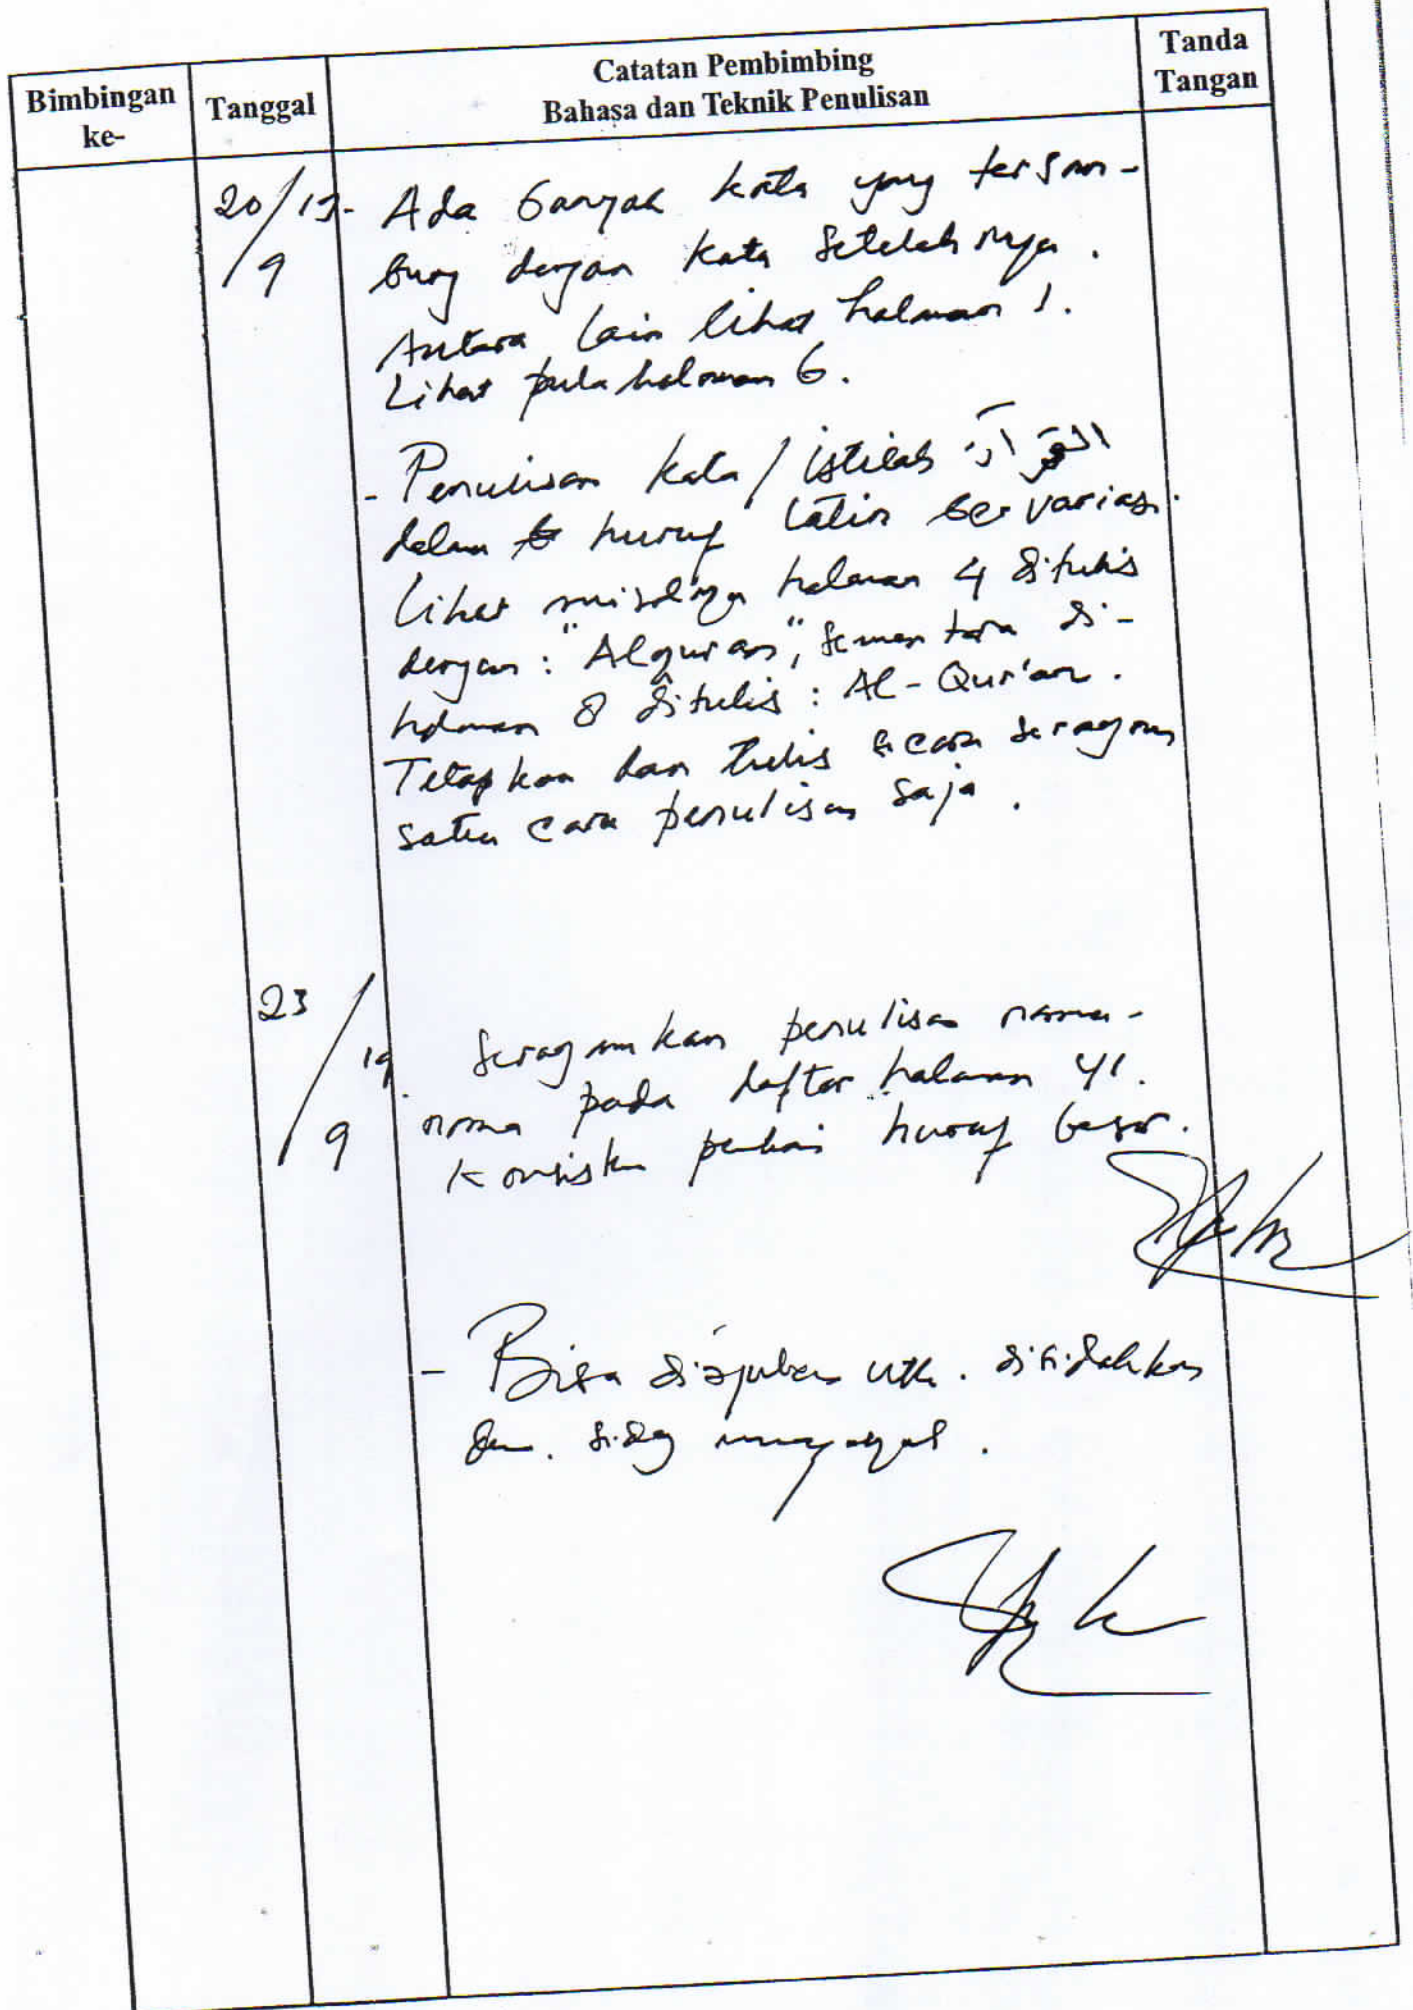 Bimbingan ke-
Tanggal
Catatan Pembimbing
Bahasa dan Teknik Penulisan
Tanda
Tangan
20/
9
- Ada banyak kata yang tersam-
bung dengan kata setelahnya.
Antara lain lihat halaman 1.
Lihat pula halaman 6.
- Penulisan kata / istilah القرآن
dalam huruf latin bervariasi.
Lihat misalnya halaman 4 ditulis
dengan: "Alquran", sementara di-
halaman 8 ditulis: Al-Qur'an.
Tetapkan dan tulis secara seragam
satu cara penulisan saja.
23/19
9
Seragamkan penulisan nama-
nama pada daftar halaman 41.
Konsisten pakai huruf besar.
- Bisa diajukan utk. disidahkan